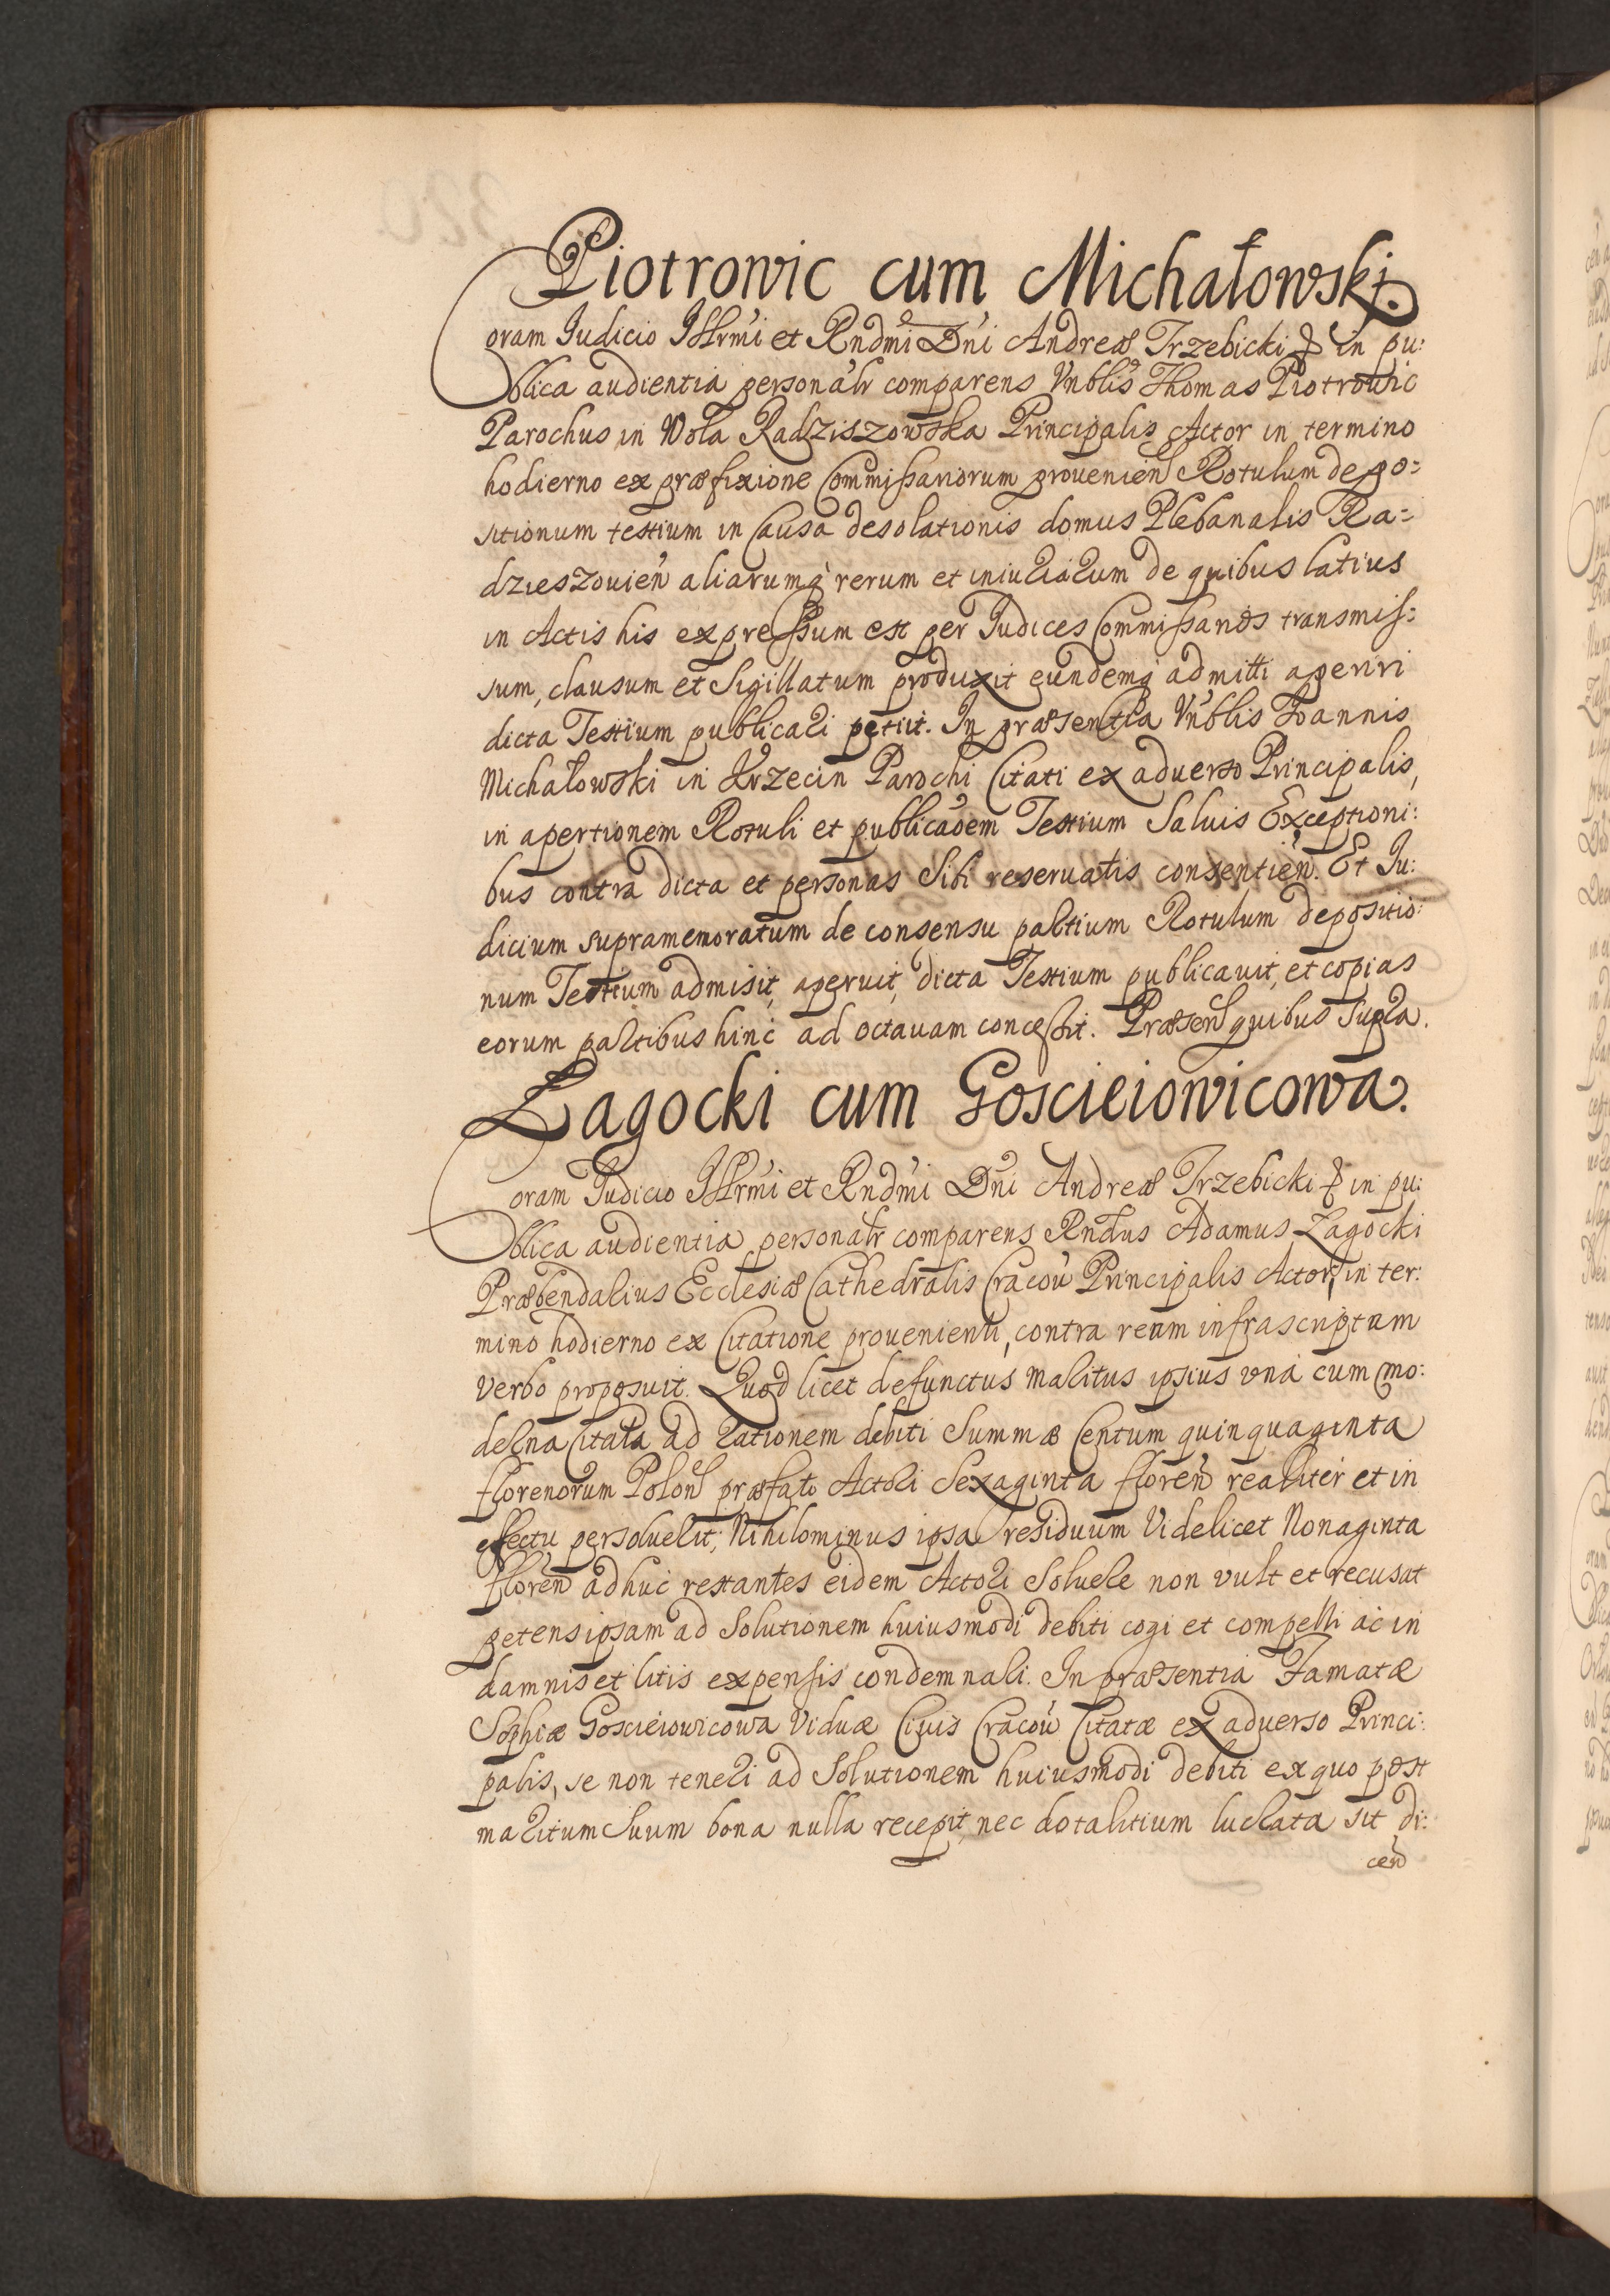 Piotrowic cum Michałowski.
Coram Judicio Jllrmi et Rndmi Dni Andreæ Trzebicki & in pu:
blica audientia personalr comparens Vnblis Thomas Piotrowic
Parochus in Wola Radziszowska Principalis Actor in termino
hodierno ex præfixione Commissariorum prouenien Rotulum depo=
sitionum testium in Causa desolationis domus Plebanalis Ra=
dzieszouien aliarumq rerum et iniuriarum de quibus latius
in Actis his expressum est per Judices Commissarios transmis:
sum, clausum et Sigillatum produxit eundemq admitti aperiri
dicta Testium publicari petiit. In præsentia Vnblis Joannis
Michałowski in Krzecin Parochi Citati ex aduerso Principalis,
in apertionem Rotuli et publicaoem Testium Saluis Exceptioni:
bus contra dicta et personas Sibi reseruatis consentien. Et Ju:
dicium supramemoratum de consensu partium Rotulum depositio:
num Testium admisit, aperuit, dicta Testium publicauit, et copias
eorum partibus hinc ad octauam concessit. Præsen quibus Supra.
Zagocki cum Goscieiowicowa.
Coram Judicio Jllrmi et Rndmi Dni Andreæ Trzebicki & in pu:
blica audientia personalr comparens Rndus Adamus Zagocki
Præbendarius Ecclesiæ Cathedralis Cracou Principalis Actor, in ter:
mino hodierno ex Citatione prouenienti, contra ream infrascriptam
verbo proposuit. Quod licet defunctus maritus ipsius vna cum mo:
derna Citata ad rationem debiti Summæ Centum quinquaginta
florenorum Polon præfato Actori Sexaginta floren realiter et in
effectu persoluerit; Nihilominus ipsa residuum Videlicet Nonaginta
floren adhuc restantes eidem Actori Soluere non vult et recusat
petens ipsam ad Solutionem huiusmodi debiti cogi et compelli ac in
damnis et litis expensis condemnari. In præsentia Famatæ
Sophiæ Goscieiowicowa Viduæ Ciuis Cracou Citatæ ex aduerso Princi:
palis, se non teneri ad Solutionem huiusmodi debiti ex quo post
maritum Suum bona nulla recepit, nec dotalitium lucrata sit di:
cen